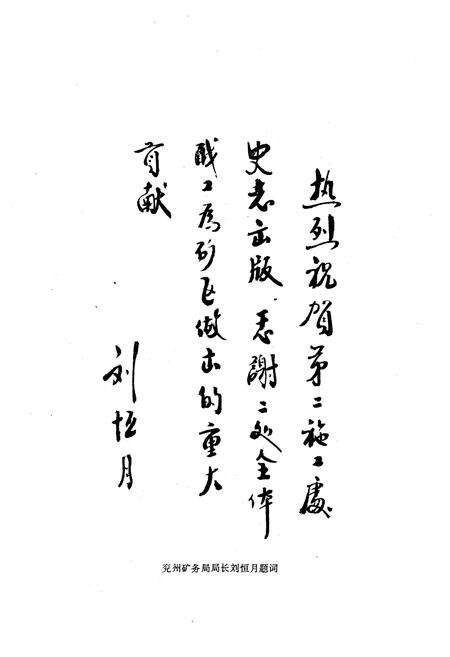 热烈祝贺第二施工處
史志出版 感謝二处全体
职工為矿区做出的重大
贡献
刘恒月
兖州矿务局局长刘恒月题词